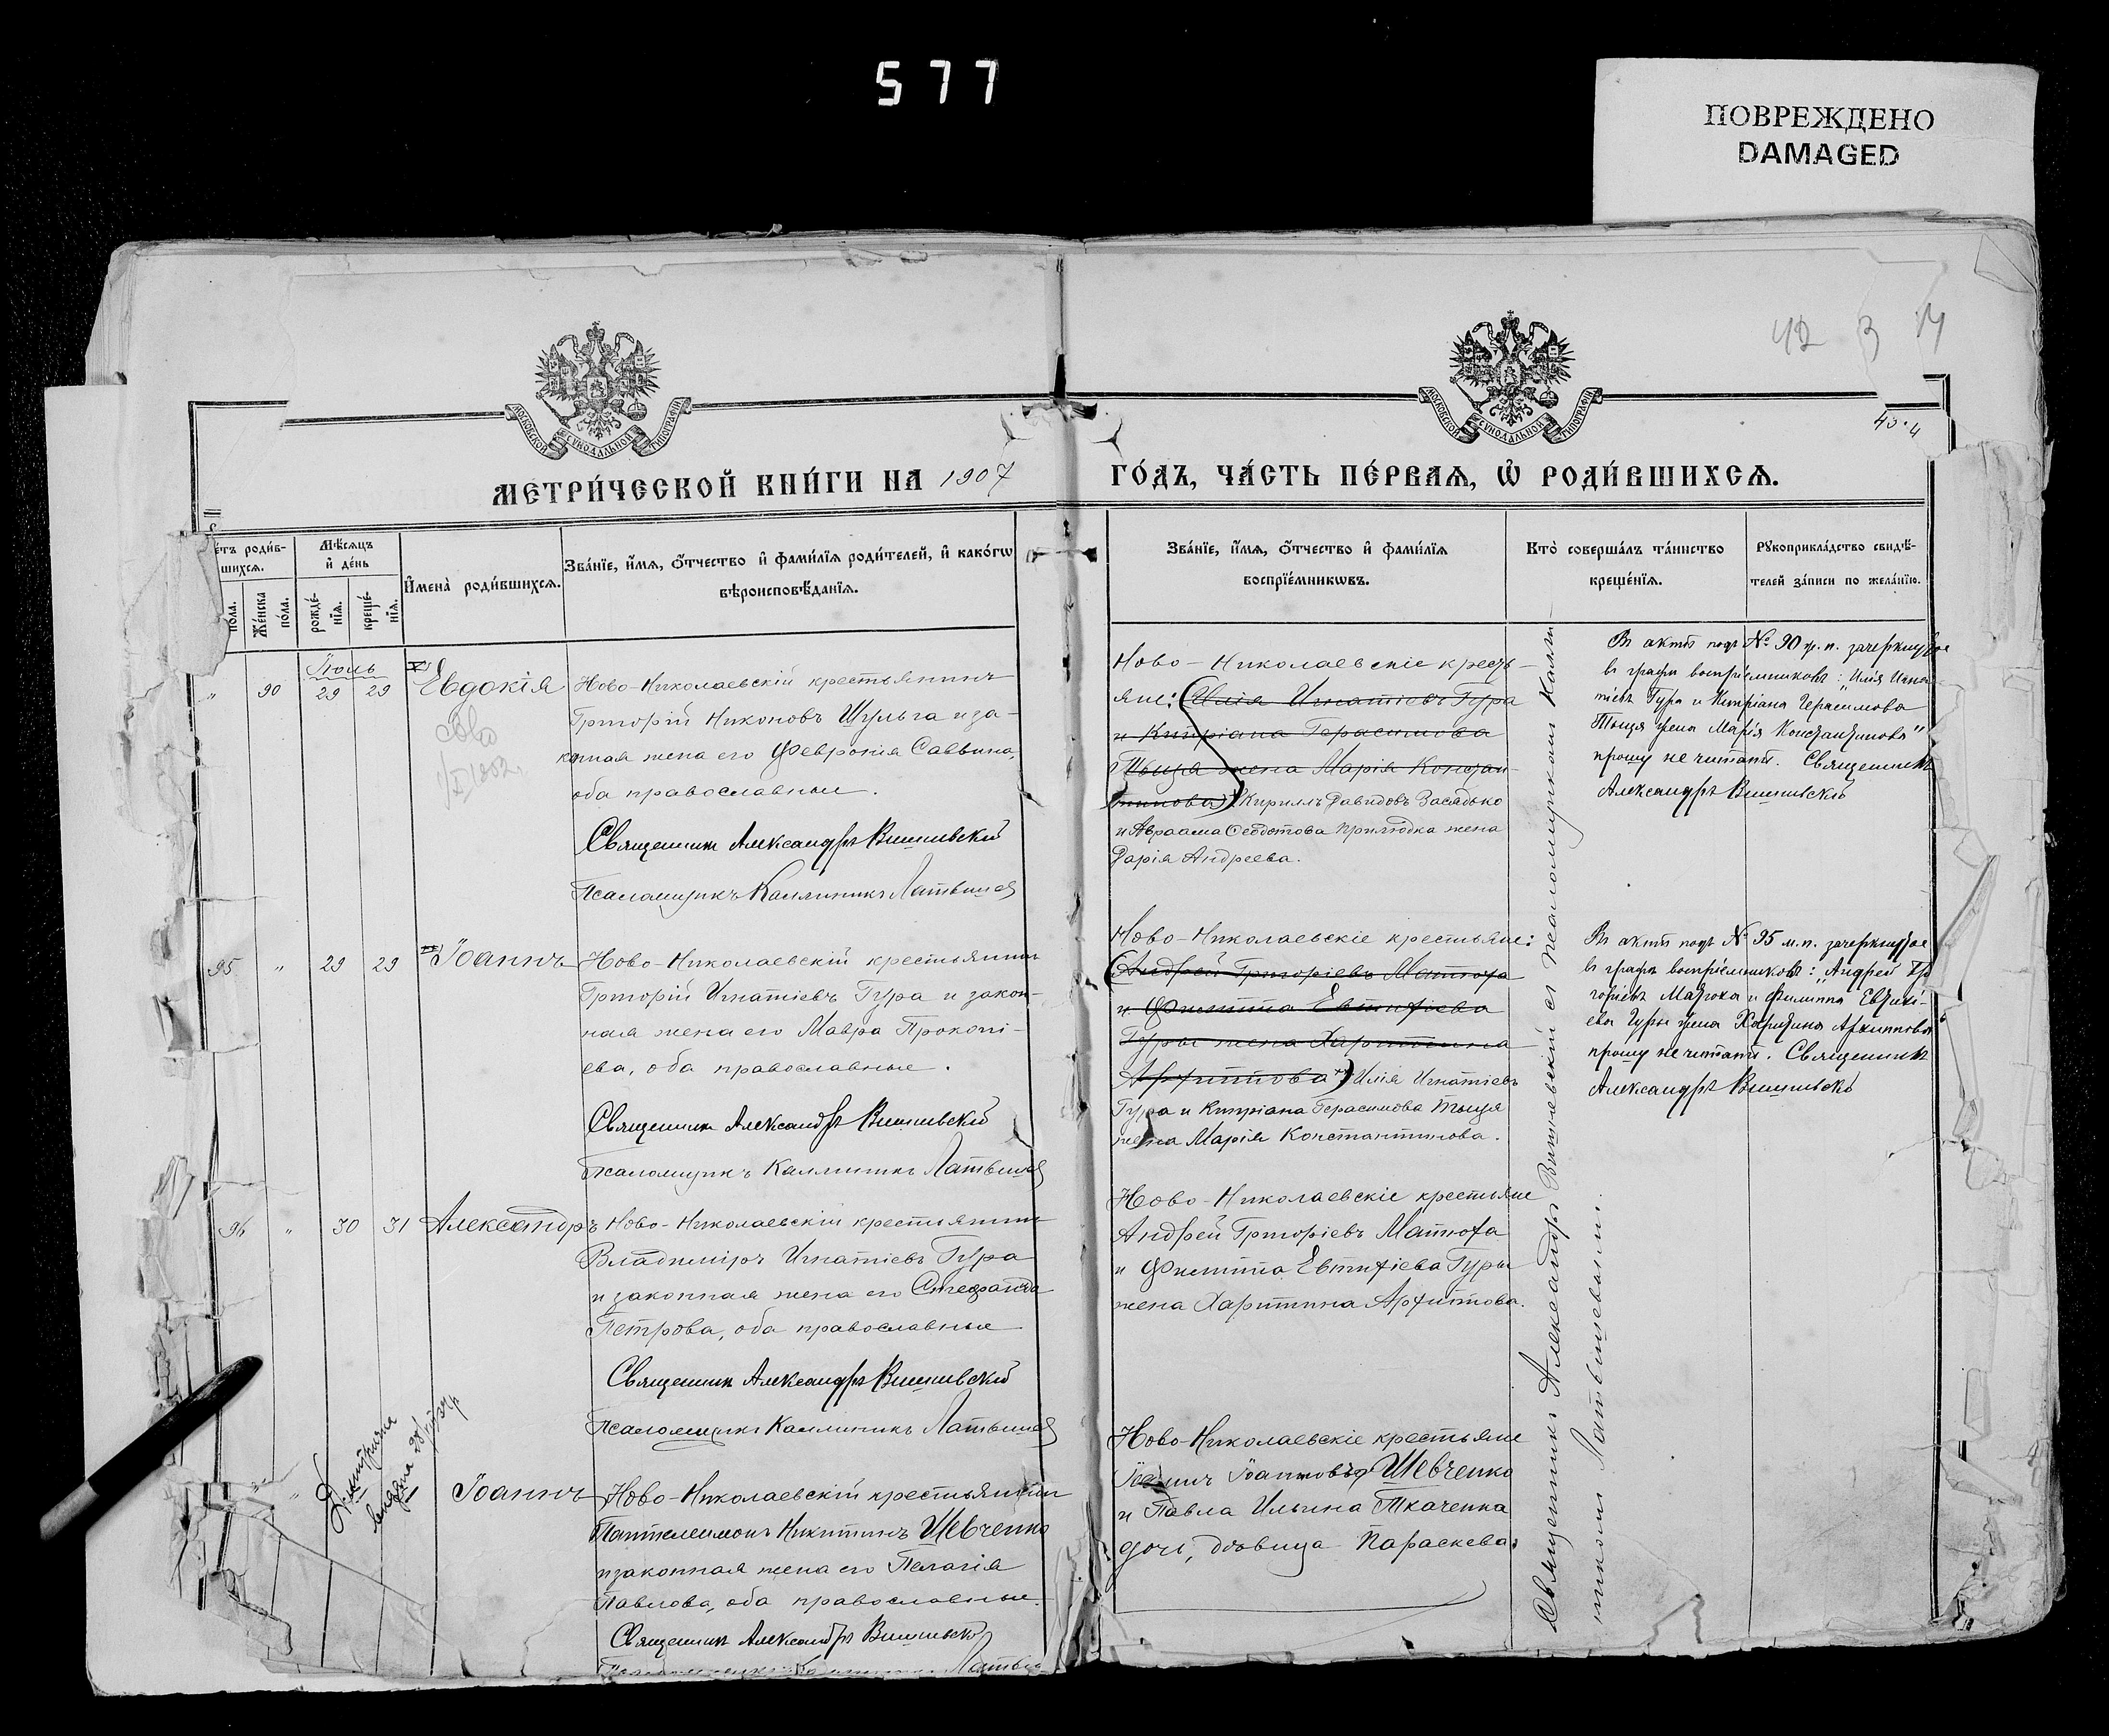 577
ПОВРЕЖДЕНО
DAMAGED
42 3 14
43.4
МОСКОВСКОЙ СѴНОДАЛЬНОЙ ТИПОГРАФІИ
МОСКОВСКОЙ СѴНОДАЛЬНОЙ ТИПОГРАФІИ
МЕТРИ́ЧЕСКОЙ КНИ́ГИ НА 1907
ГО́ДЪ, ЧА́СТЬ ПЕ́РВАѦ, Ѡ҆ РОДИ́ВШИХСѦ.
етъ роди́в-
шихсѧ.
по́ла.
Же́нска
по́ла.
Мѣ́сѧцъ
и҆ де́нь
рожде́-
нїѧ.
креще́-
нїѧ.
И҆мена̀ роди́вшихсѧ.
Зва́нїе, и҆́мѧ, ѻ҆́тчество и҆ фами́лїѧ роди́телей, и҆ како́гѡ
вѣроисповѣ́данїѧ.
Зва́нїе, и҆́мѧ, ѻ҆́тчество и҆ фами́лїѧ
воспрїе́мникѡвъ.
Кто̀ соверша́лъ та́инство
креще́нїѧ.
Рꙋкоприкла́дство свидѣ́-
телей за́писи по жела́нїю.
Іюль
" 90 29 29 Евдокія
Ново-Николаевскій крестьянинъ
Григорій Никоновъ Шульга и за-
конная жена его Феврония Саввина,
оба православные.
Священникъ Александръ Вишневскій
Псаломщикъ Каллиникъ Латышев
Ново-Николаевскіе кресть-
яне: (Илія Игнатіевъ Гура
и Кипріана Герасимова
Тыця жена Марія Констан-
тинова) Кириллъ Давидовъ Засядько
и Авраама Ѳеодотова Прилюдка жена
Дарія Андреева.
Въ актѣ подъ № 90 ж. п. зачеркнутое
въ графѣ воспріемниковъ: "Илія Игна-
тіевъ Гура и Кипріана Герасимова
Тыця жена Марія Константинова"
прошу не читать. Священникъ
Александръ Вишневскій
95 " 29 29 Іоаннъ
Ново-Николаевскій крестьянинъ
Григорій Игнатіевъ Гура и закон-
ная жена его Мавра Прокопі-
ева, оба православные.
Священникъ Александръ Вишневскій
Псаломщикъ Каллиникъ Латышев
Ново-Николаевскіе крестьяне:
(Андрей Григоріевъ Матюха
и Филиппа Евтихіева
Гуры жена Харитина
Архиппова) Илія Игнатіевъ
Гура и Кипріана Герасимова Тыця
жена Марія Константинова.
Въ актѣ подъ № 95 м. п. зачеркнутое
въ графѣ воспріемниковъ: Андрей Гри
горіевъ Матюха и Филиппа Евтихі-
ева Гуры жена Харитина Архиппова
прошу не читать. Священникъ
Александръ Вишневскій
96 " 30 31 Александръ
Ново-Николаевскій крестьянинъ
Владиміръ Игнатіевъ Гура
и законная жена его Стефанида
Петрова, оба православные
Священникъ Александръ Вишневскій
Псаломщикъ Каллиникъ Латышев
Ново-Николаевскіе крестьяне
Андрей Григоріевъ Матюха
и Филиппа Евтихіева Гуры
жена Харитина Архиппова.
Іоаннъ
Ново-Николаевскій крестьянинъ
Пантелеимонъ Никитинъ Шевченко
и законная жена его Пелагія
Павлова, оба православные.
Священникъ Александръ Вишневскій
Ново-Николаевскіе крестьяне
Іоаннъ Іоанновъ Шевченко
и Павла Ильина Ткаченка
дочь, дѣвица Параскева.
Священникъ Александръ Вишневскій съ псаломщикомъ Калли-
никомъ Латышевымъ.